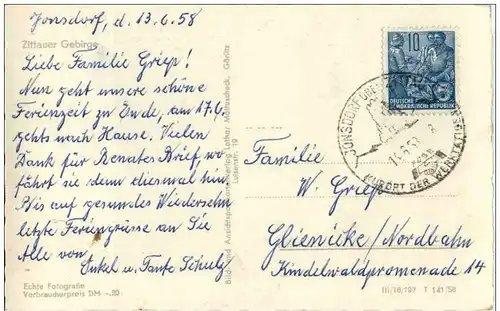 Jonsdorf, d. 13.6.58
Zittauer Gebirge
Liebe Familie Griep!
Nun geht unsere schöne
Ferienzeit zu Ende, am 17.6.
gehts nach Hause. Vielen
Dank für Renates Brief, wo
fährt sie denn diesmal hin?
Bis auf gesundes Wiedersehn
letzte Feriengrüsse an Sie
Alle von
Onkel u. Tante Schulz
Echte Fotografie
Verbraucherpreis DM -.20
Bild- und Ansichtspostkartenverlag Lothar Görlitz
Luisenstr. 19
10
DEUTSCHE
DEMOKRATISCHE REPUBLIK
JONSDORF
KURORT DER
Familie
W. Griep
Glienicke/Nordbahn
Kindelwaldpromenade 14
III/18/197 T 141/58